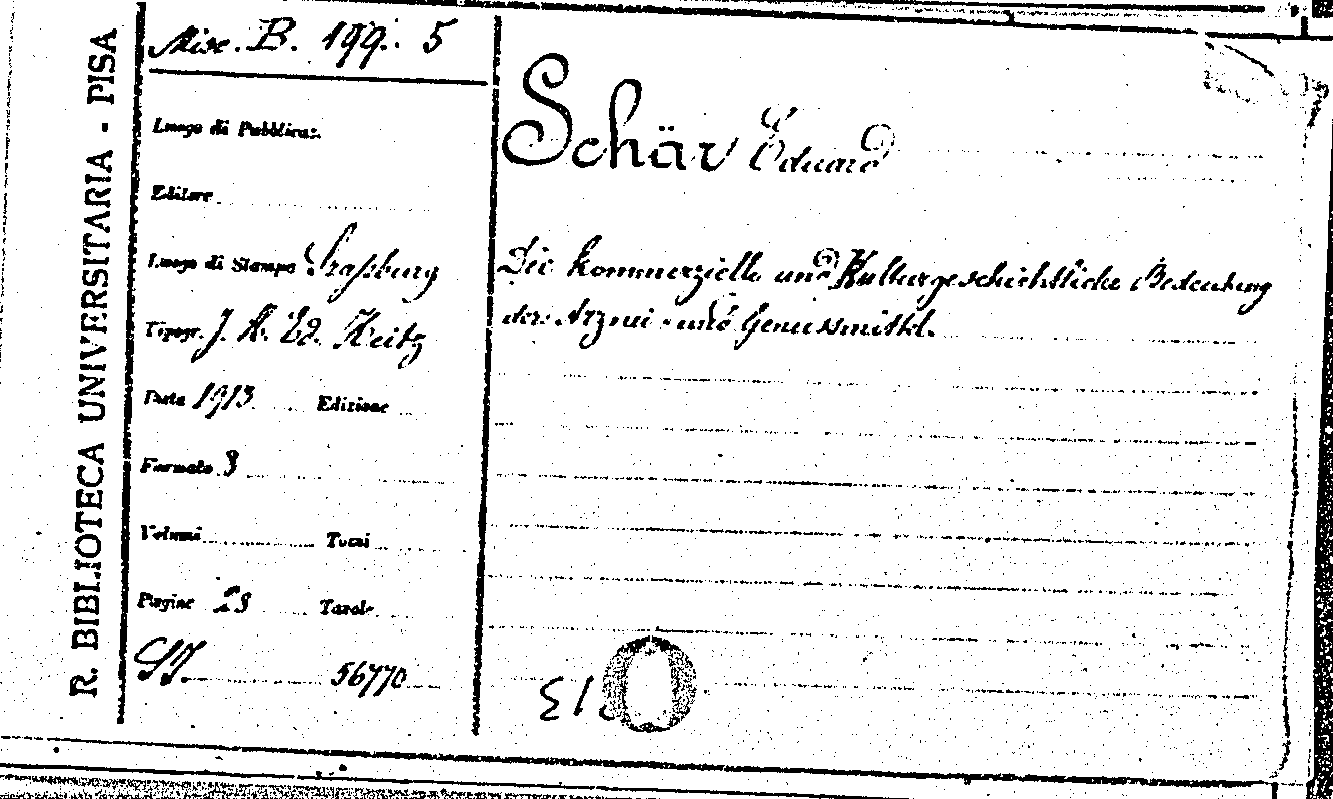 R. BIBLIOTECA UNIVERSITARIA - PISA
Misc. B. 199. 5
Luogo di Pubblicaz.
Editore
Luogo di Stampa Straßburg
Tipogr. J. H. Ed. Heitz
Data 1913 Edizione
Formato 8
Volumi Tomi
Pagine 28 Tavole
56770
Schär Eduard
Die kommerzielle und Kulturgeschichtliche Bedeutung
der Arznei- und Genussmittel.